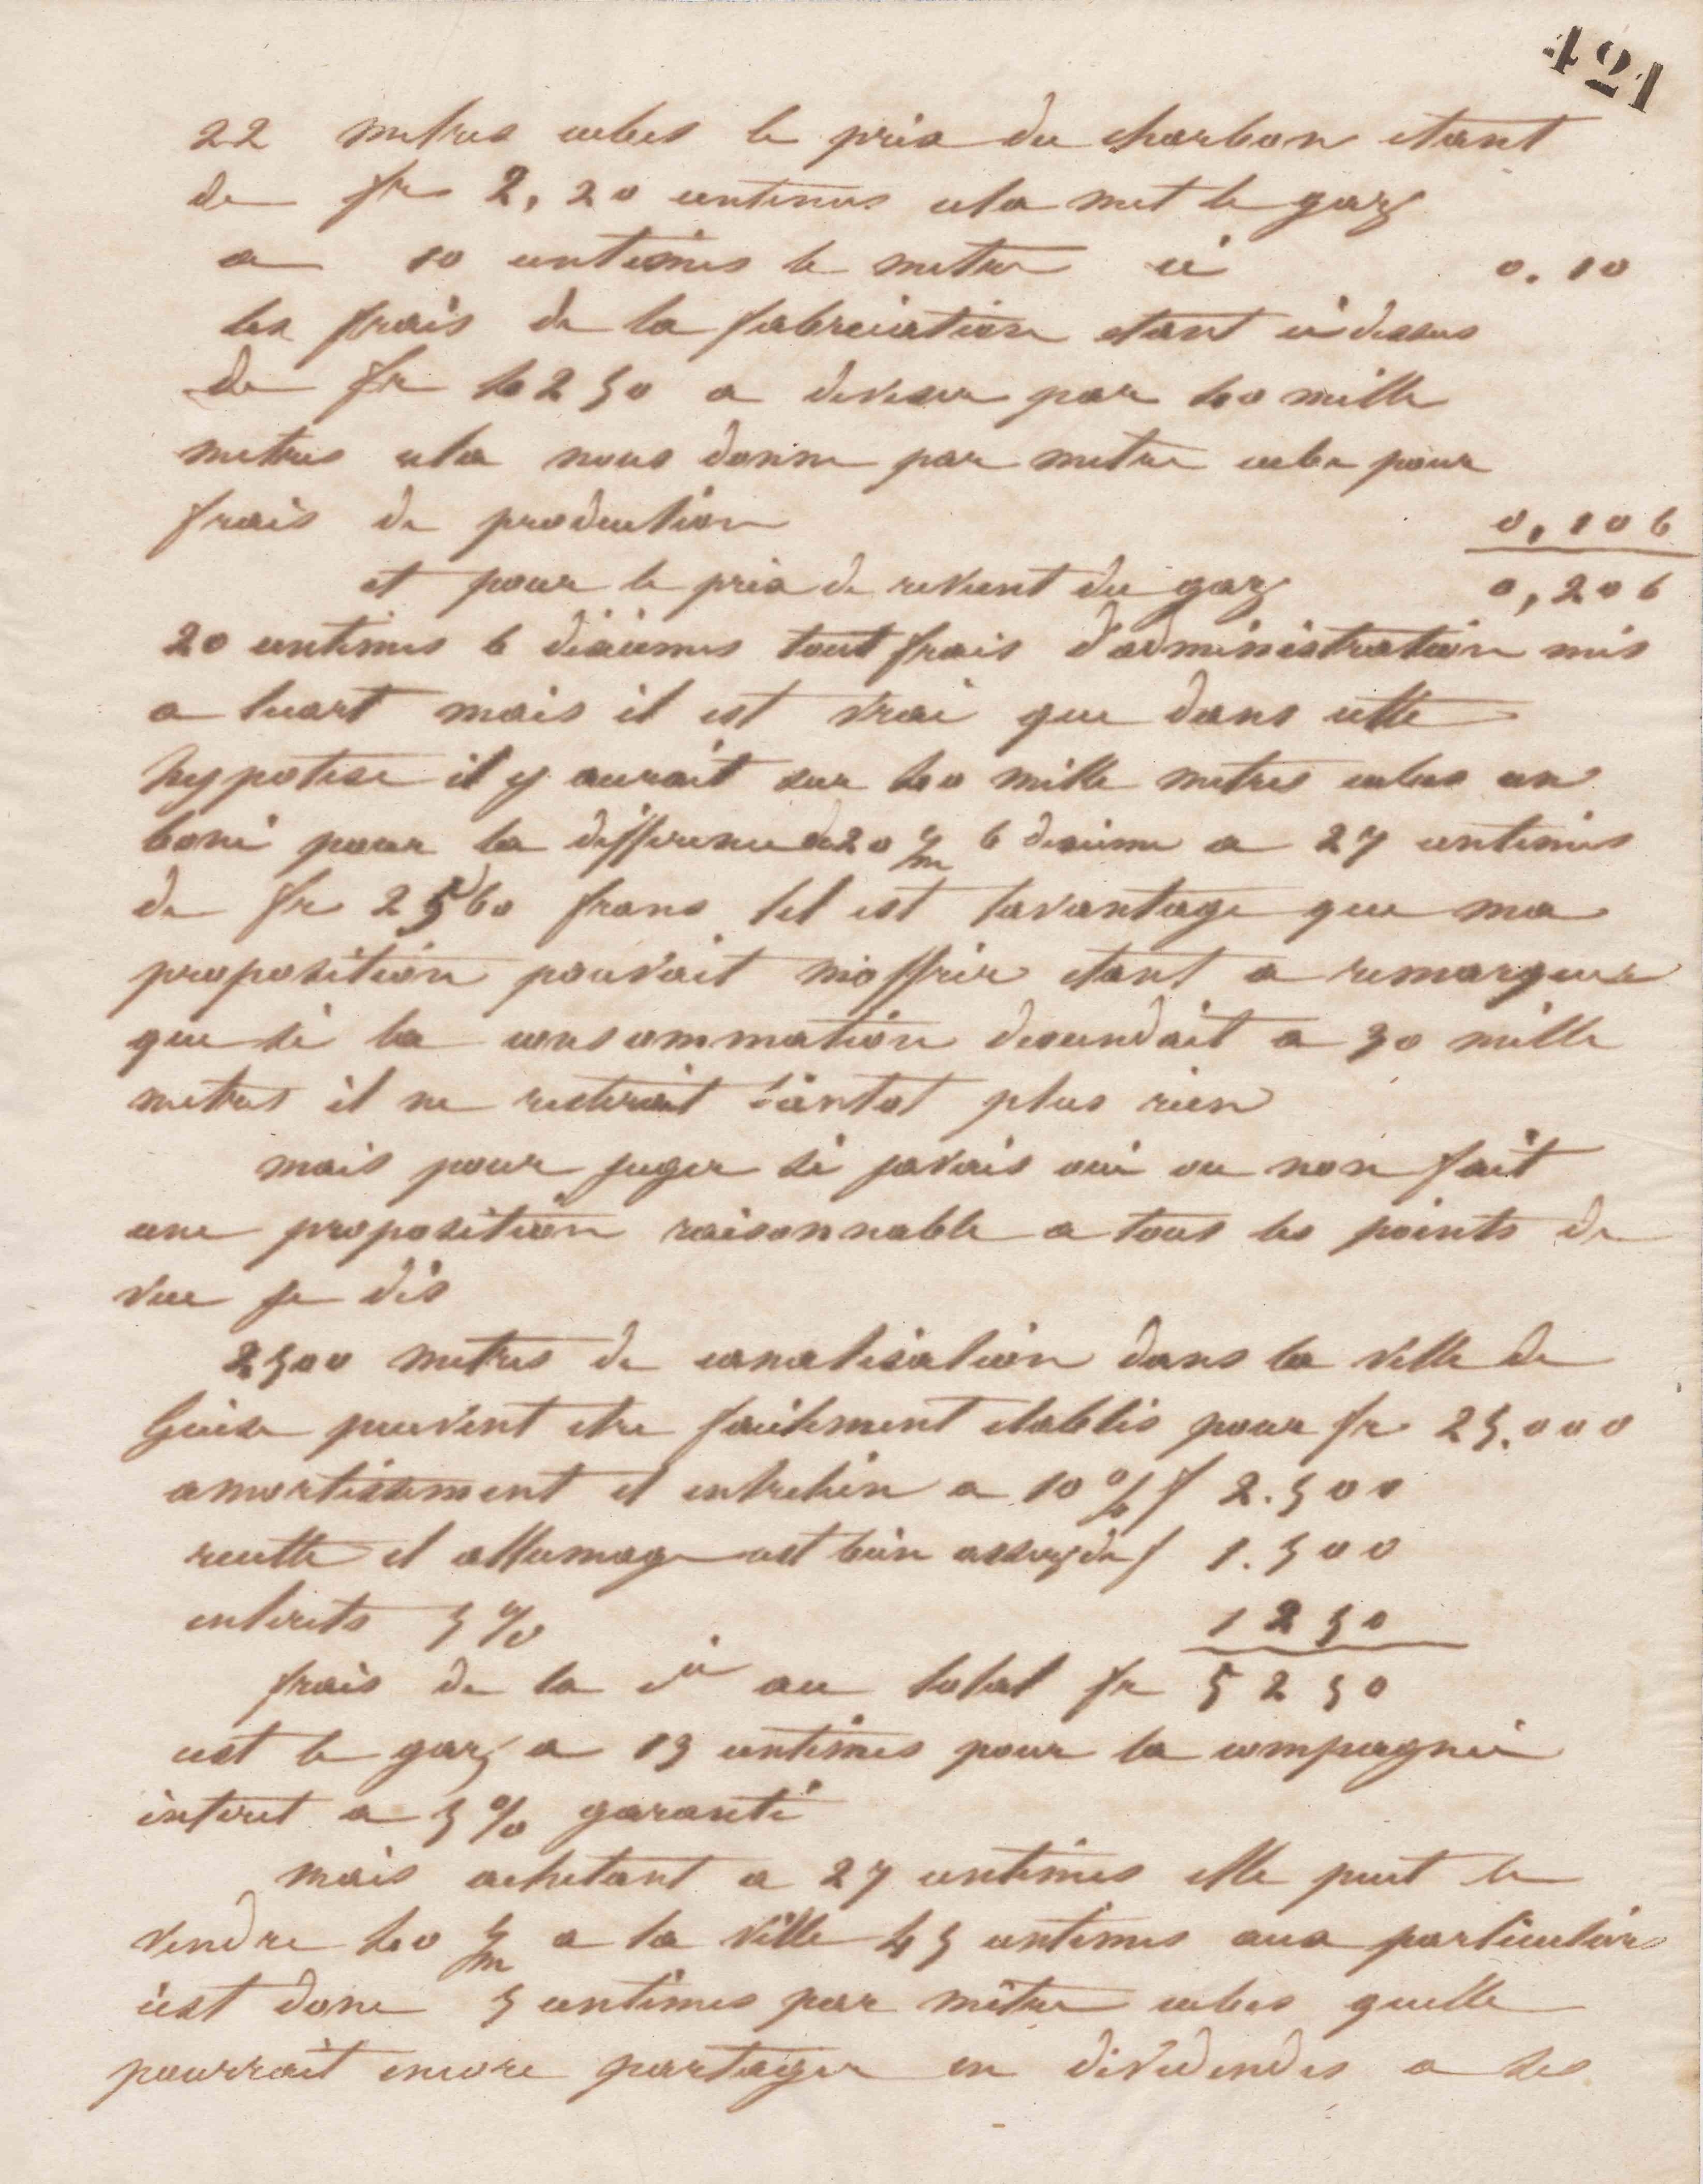 421
22 metres cubes le prix du charbon etant
de fr 2,20 centimes cela met le gaz
a 10 centimes le metre ci 0.10
les frais de la fabreication etant ci dessus
de fr 4250 a diviser par 40 mille
metres cela nous donne par metre cube pour
frais de production 0,106
et pour le prix de revient du gaz 0,206
20 centimes 6 dixiemes tout frais d'administration mis
a lecart mais il est vrai que dans cette
hypotese il y aurait sur 40 mille metres cubes un
boni pour la difference de 20 c/m 6 dixieme a 27 centimes
de fr 2560 francs tel est lavantage que ma
proposition pouvait moffrir etant a remarquer
que si la consommation descendait a 30 mille
metres il ne resterait bientot plus rien
mais pour juger si javais oui ou non fait
une proposition raisonnable a tous les points de
vue je dis
2500 metres de canalisation dans la ville de
Guise peuvent etre facilement etablis pour fr 25.000
amortissement et entretien a 10 % f 2.500
recette et allumage cest bien assez de f 1.500
interets 5 % 1250
frais de la cie au total fr 5250
cest le gaz a 13 centimes pour la compagnie
interet a 5 % garanti
mais achetant a 27 centimes elle peut le
vendre 40 c/m a la ville 45 centimes aux particuliers
cest donc 5 centimes par metre cubes quelle
pourrait encore partager en dividendes a ses